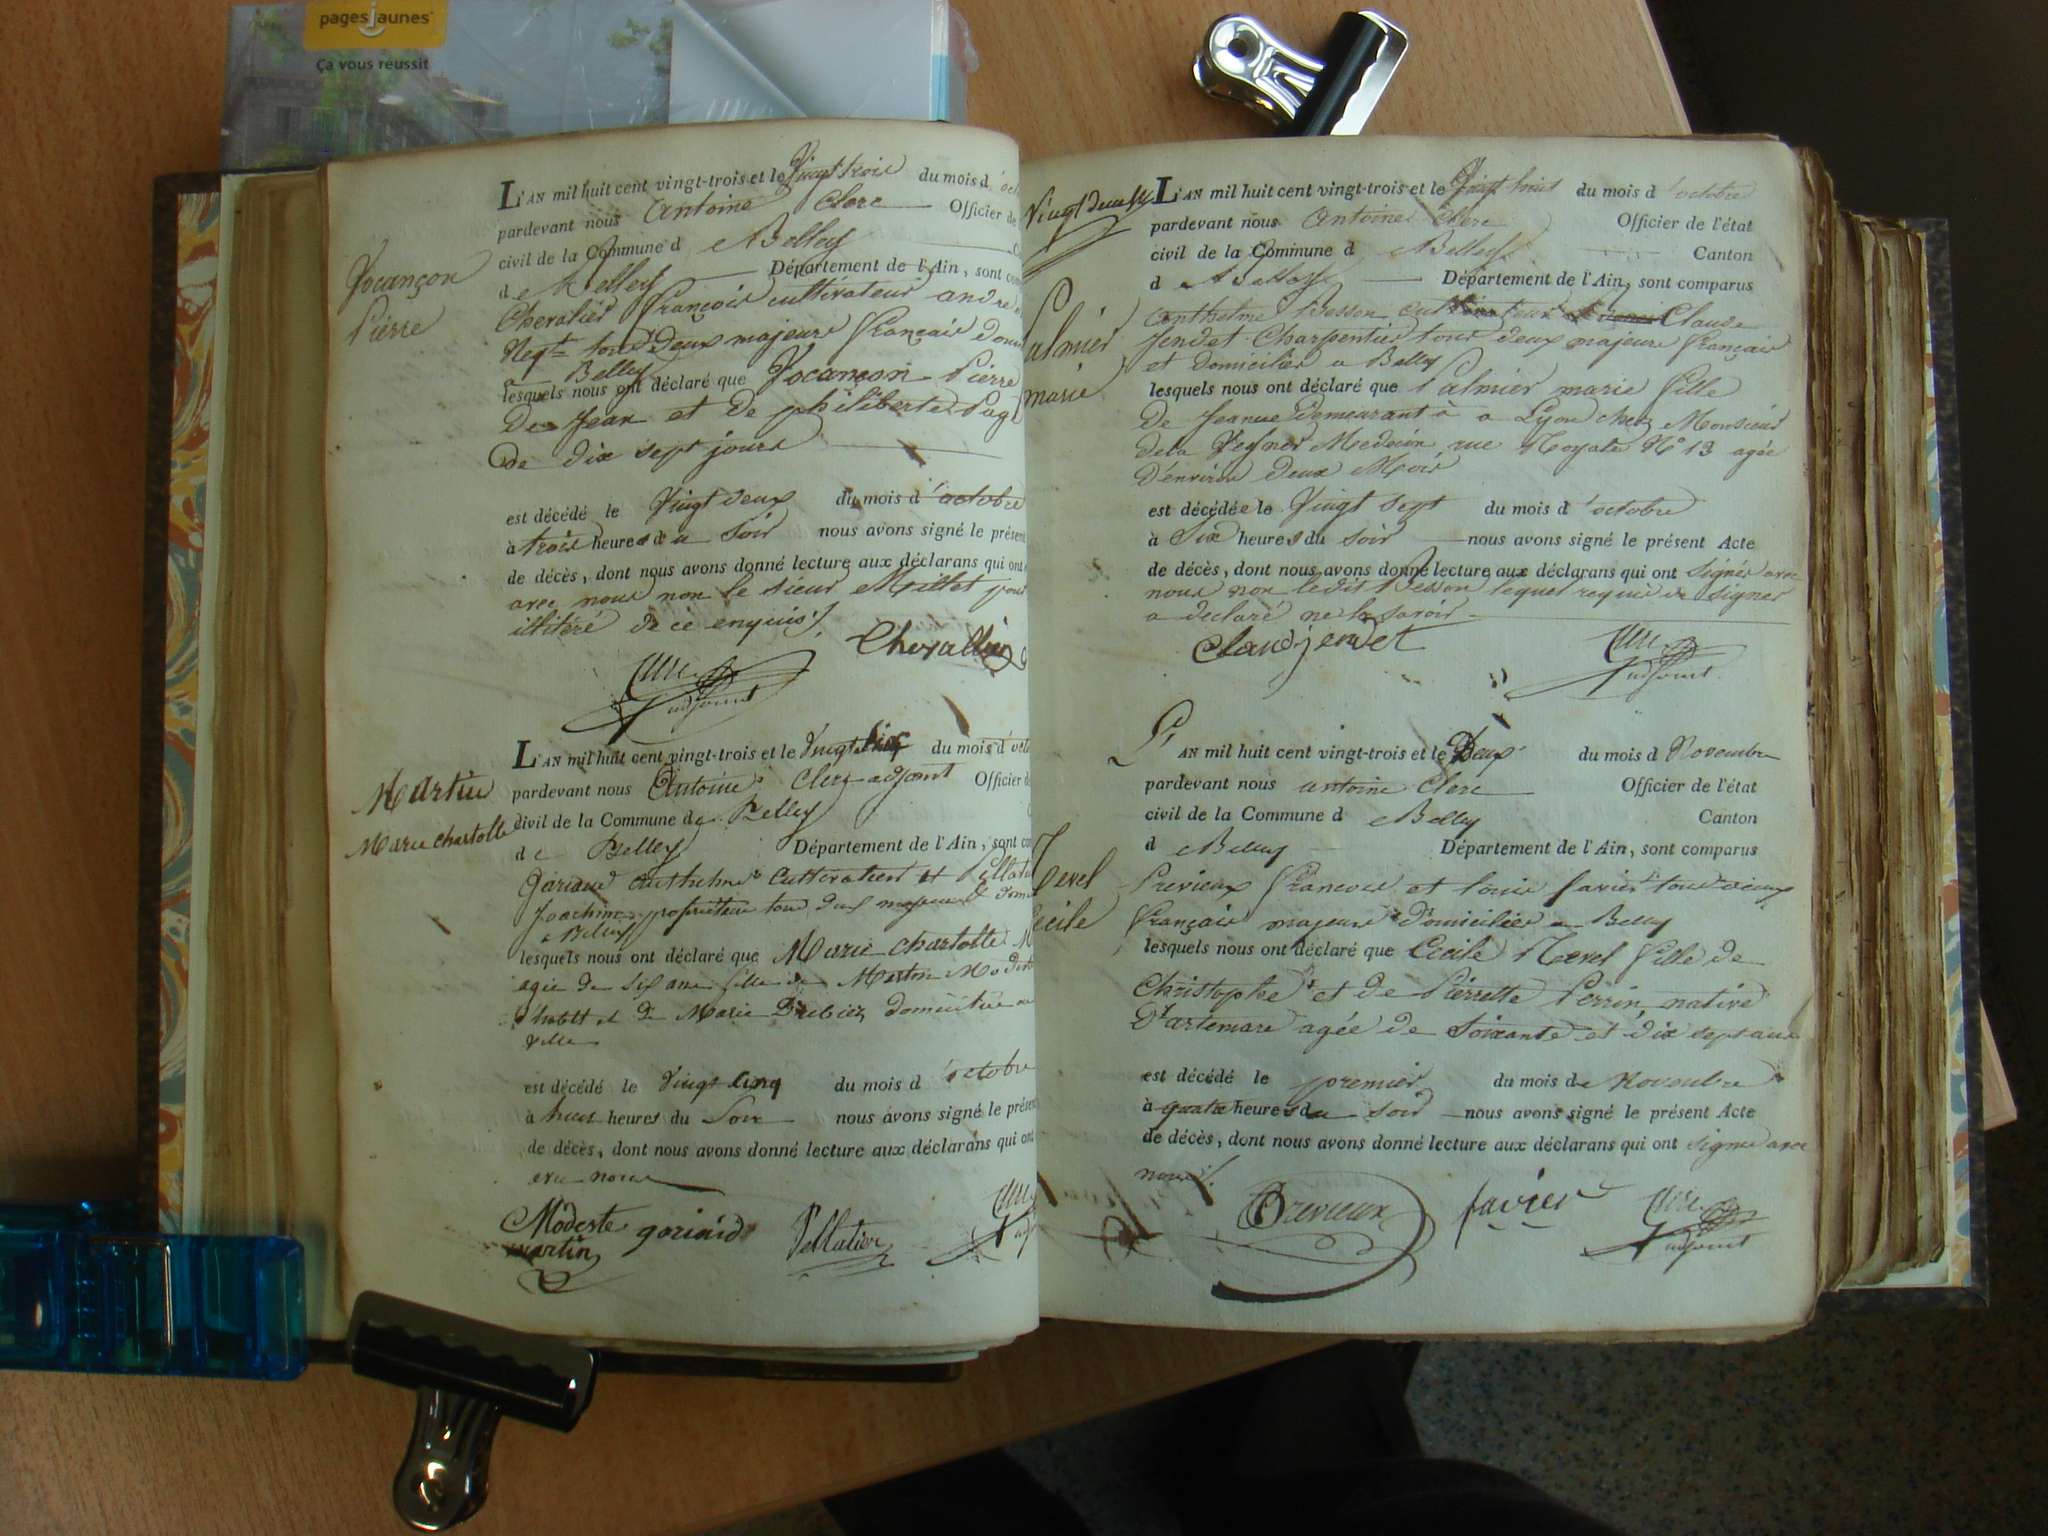 pagesjaunes
Ça vous réussit
L'AN mil huit cent vingt-trois et le Vingt trois du mois d'oct
pardevant nous Antoine Clerc Officier de
civil de la Commune d Belley
d e Belley Département de l'Ain, sont com
Jocançon
Pierre
Chevalier François cultivateur andré
Negt tous Deux majeurs français Dom
a Belley
lesquels nous ont déclaré que Jocançon Pierre
De Jean et de philiberte Pug
de dix sept jours
est décédé le Vingt deux du mois d'octobre
à trois heures du Soir nous avons signé le présent
de décès, dont nous avons donné lecture aux déclarans qui ont
avec nous non le sieur Millet pour
illitéré de ce enquis
Chevallier
Clerc
adjoint
L'AN mil huit cent vingt-trois et le Vingt Six du mois d'octo
pardevant nous Antoine Clerc adjoint Officier de
civil de la Commune de Belley
d e Belley Département de l'Ain, sont co
Martin
Marie charlotte
anthelme Cultivateur et Pellatie
Joachim propriétaire tous deux majeurs et dom
a Belley
lesquels nous ont déclaré que Marie charlotte M
agée de Six ans fille de Martin Modeste
et de Marie Dubiez Domiciliée en
ville
est décédé le Vingt Cinq du mois d'octobre
à huit heures du Soir nous avons signé le présent
de décès, dont nous avons donné lecture aux déclarans qui ont
avec nous
Modeste goriaud Pellatier Clerc
martin adj
Vingt deux
L'AN mil huit cent vingt-trois et le Vingt huit du mois d'octobre
pardevant nous Antoine Clerc Officier de l'état
civil de la Commune d Belley Canton
d Belley Département de l'Ain, sont comparus
Palmier
marie
anthelme Besson cultivateur Claude
Jendet Charpentier tous deux majeurs français
et Domiciliés a Belley
lesquels nous ont déclaré que Palmier marie fille
De Jeanne Demeurant a Lyon chez Monsieur
dela Medecin rue Royale N° 13 agée
D'environ deux Mois
est décédée le Vingt Sept du mois d'octobre
à Six heures du soir nous avons signé le présent Acte
de décès, dont nous avons donné lecture aux déclarans qui ont signés avec
nous non ledit Besson lequel requis de signer
a déclaré ne le savoir
Claudjendet
Clerc
adjoint
L'AN mil huit cent vingt-trois et le Deux du mois d Novembre
pardevant nous antoine Clerc Officier de l'état
civil de la Commune d Belley Canton
d Belley Département de l'Ain, sont comparus
Cecile
Previeux francois et louis favier tous deux
français majeurs Domiciliés a Belley
lesquels nous ont déclaré que Cecile fille de
Christophe et de Pierrette Perrin native
D'artemare agée de Soixante et dix sept ans
est décédé le premier du mois de Novembre
à quatre heures du soir nous avons signé le présent Acte
de décès, dont nous avons donné lecture aux déclarans qui ont signé avec
nous
Previeux favier Clerc
adjoint